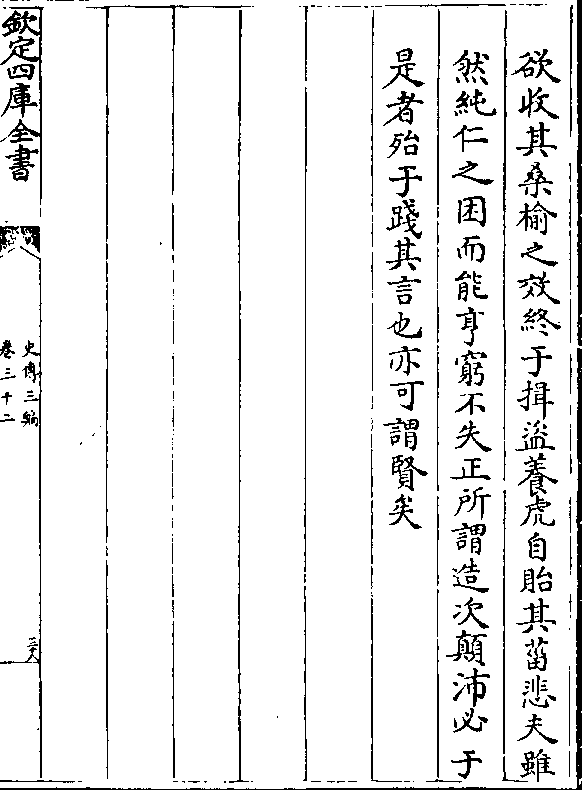 欲收其桑榆之效終于揖盜養虎自貽其菑悲夫雖
然純仁之困而能亨窮不失正所謂造次顛沛必于
是者殆于踐其言也亦可謂賢矣
欽定四庫全書
史傳三編
卷三十二
三十八